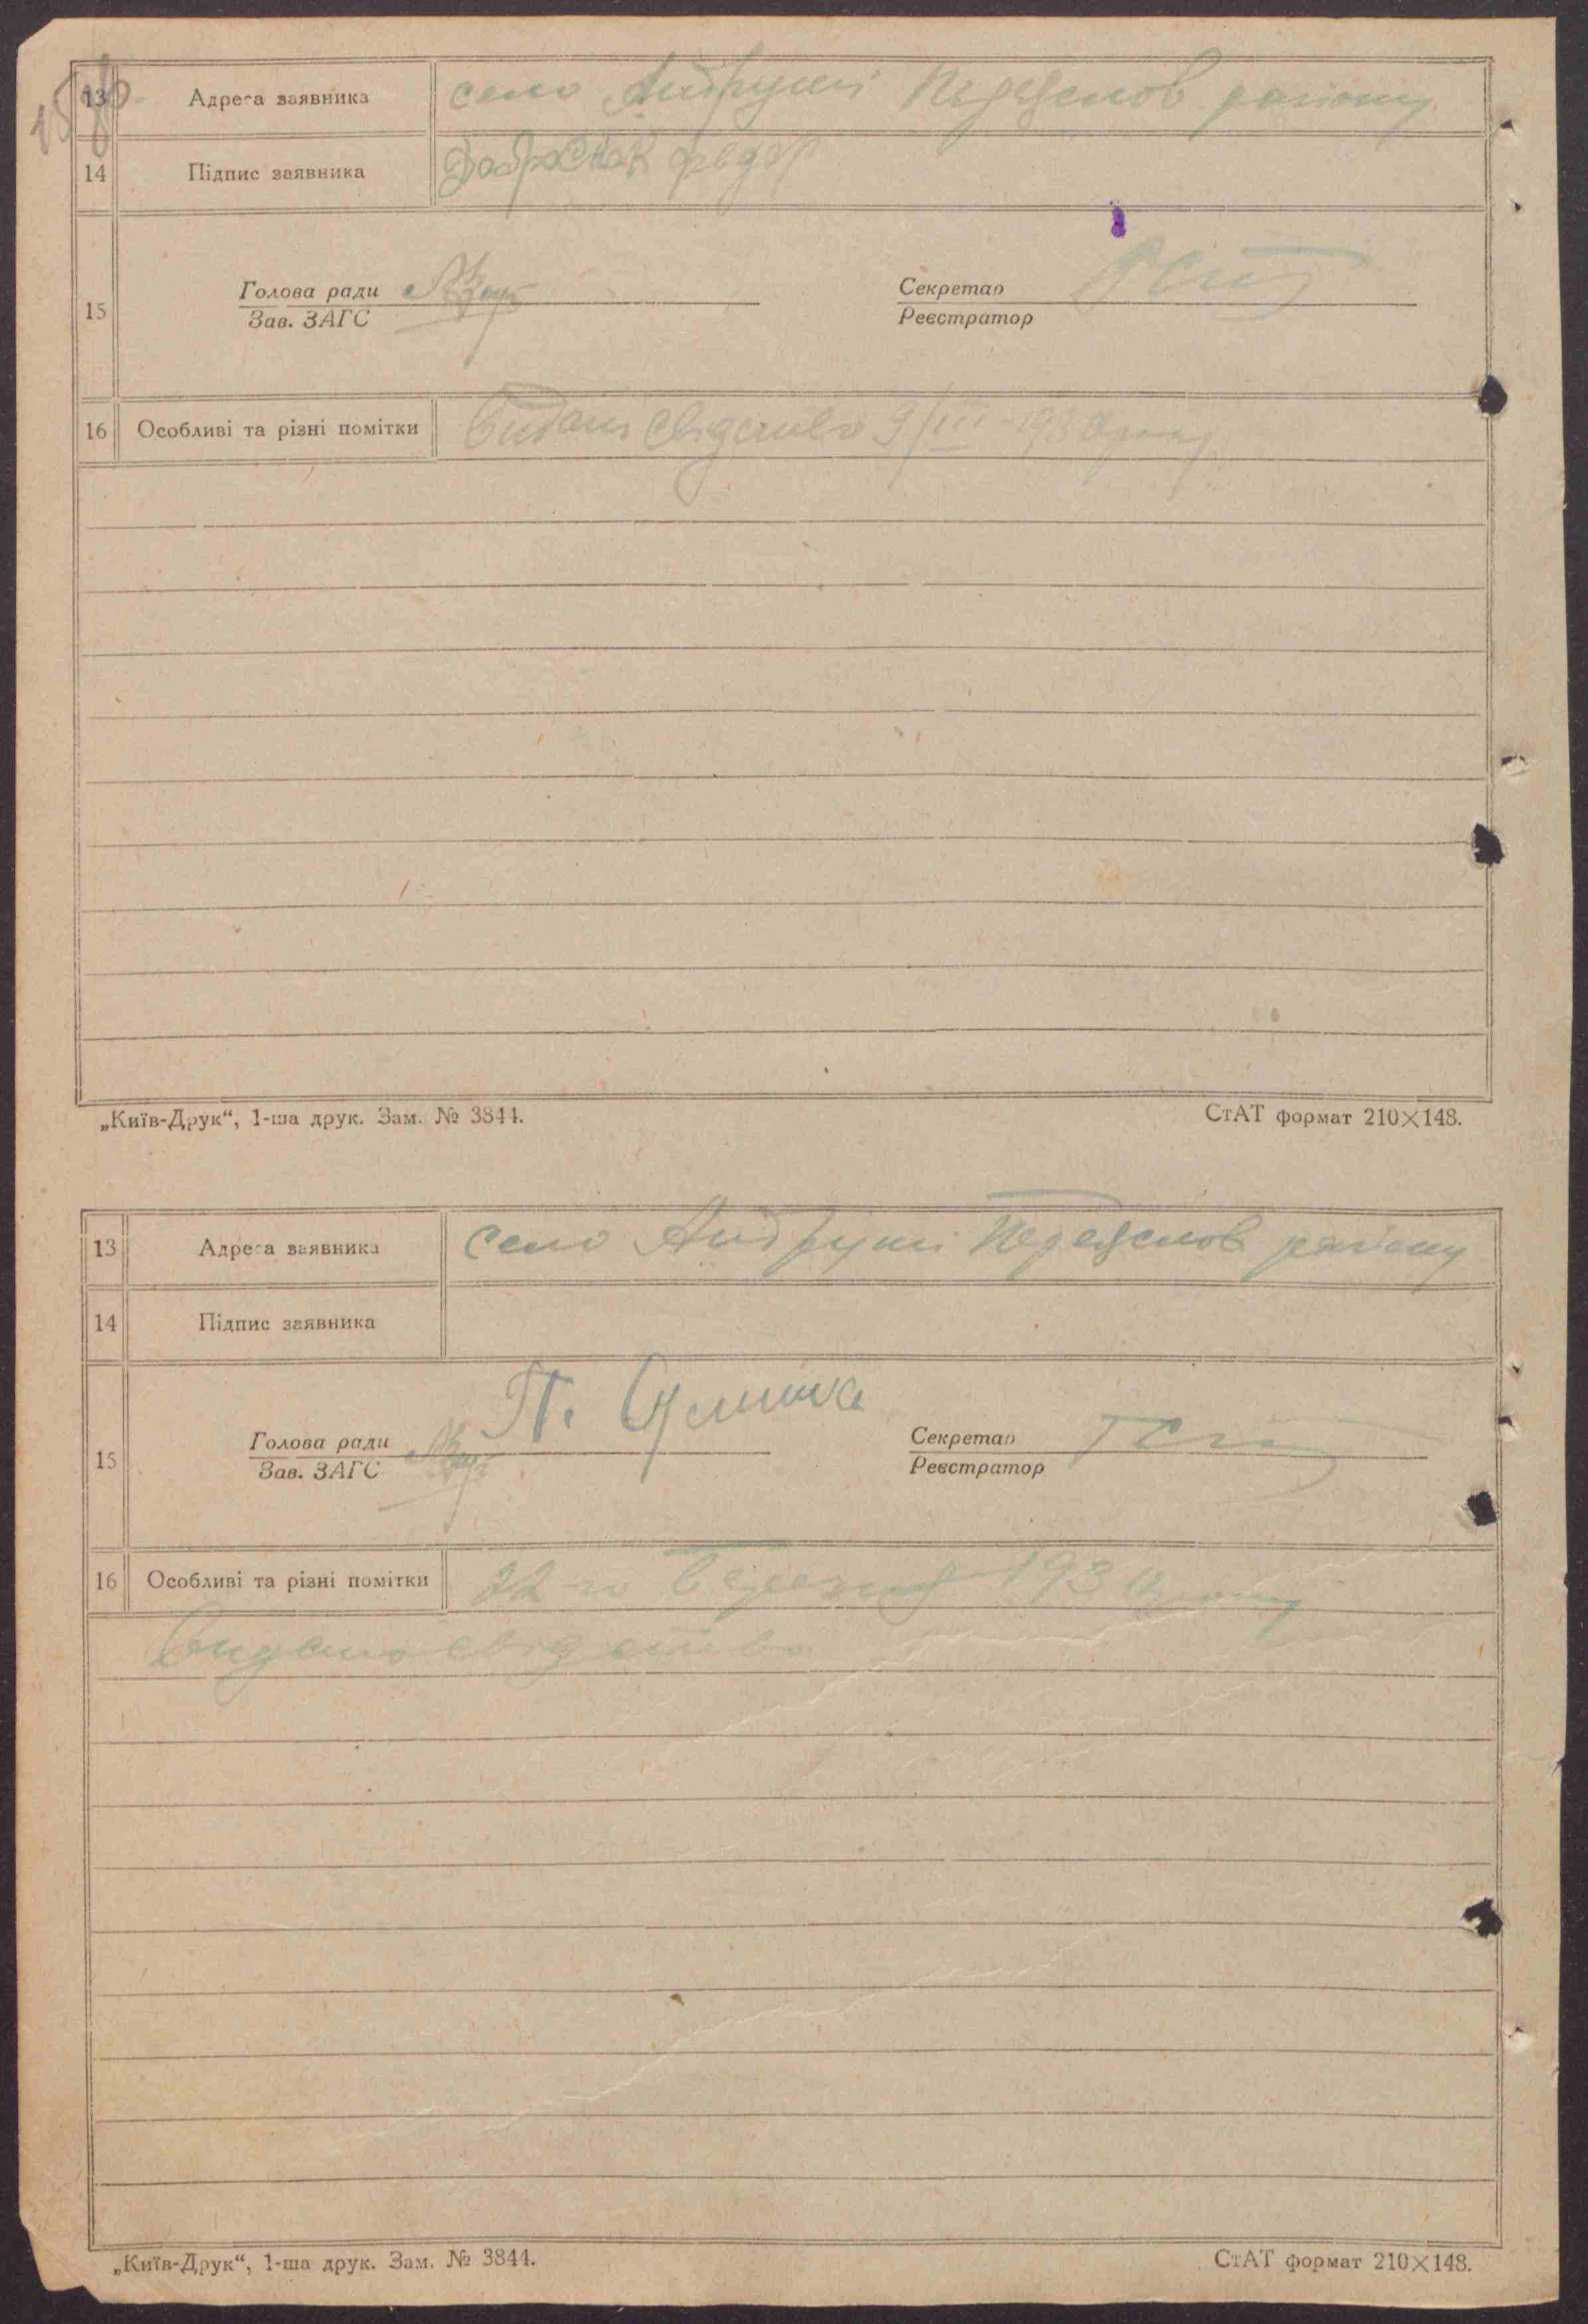 13 Адреса заявника село Андруші Переяслов району
14 Підпис заявника Федор
15 Голова ради Секретар
Зав. ЗАГС Реєстратор
16 Особливі та різні помітки Видано свідоцтво 9/III-1930 року
„Київ-Друк“, 1-ша друк. Зам. № 3844. СтАТ формат 210×148.
13 Адреса заявника село Андруші Переяслов району
14 Підпис заявника
П.
15 Голова ради Секретар
Зав. ЗАГС Реєстратор
16 Особливі та різні помітки 22-го березня 1930 року
Видано свідоцтво
„Київ-Друк“, 1-ша друк. Зам. № 3844. СтАТ формат 210×148.